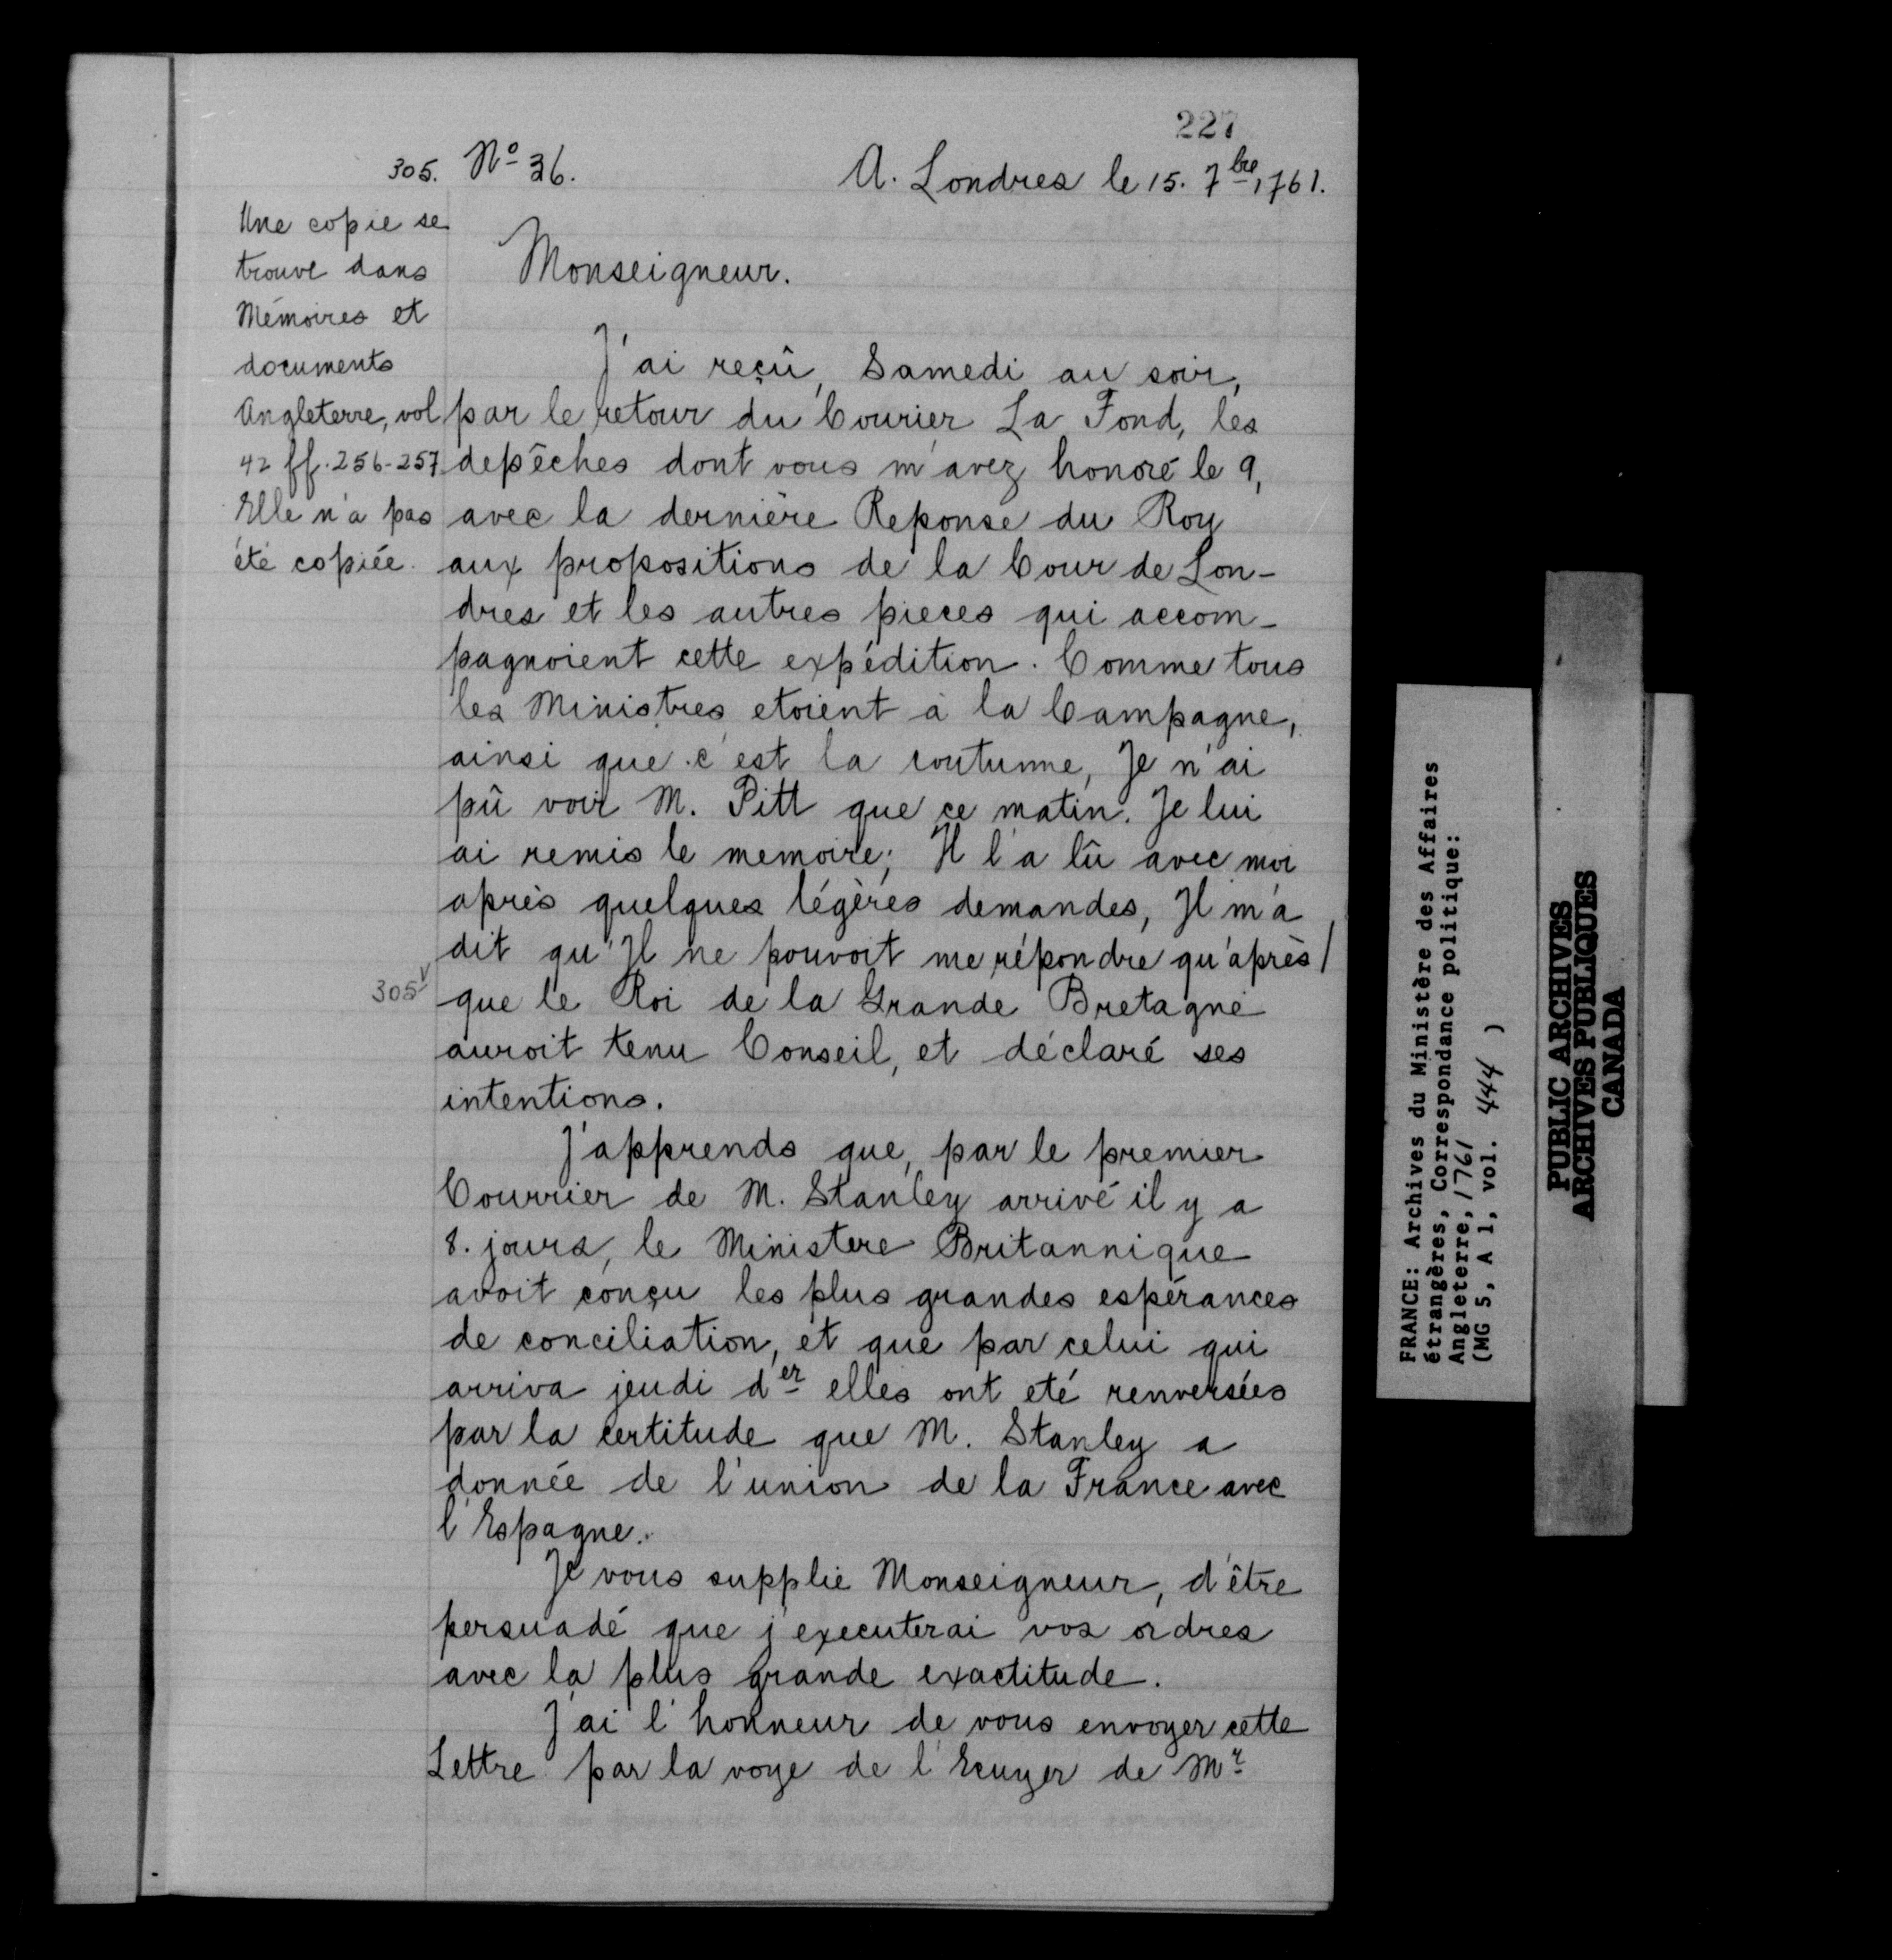 227
305. Nº 36.
A. Londres le 15. 7bre, 1761.
Une copie se
trouve dans
Mémoires et
documents
Angleterre, vol
42 ff. 256-257
Elle n'a pas
été copiée.
Monseigneur.
J'ai reçû, Samedi au soir,
par le retour du Courier La Fond, les
depêches dont vous m'avez honoré le 9,
avec la dernière Reponse du Roy
aux propositions de la Cour de Lon-
dres et les autres pieces qui accom-
pagnoient cette expédition. Comme tous
les Ministres etoient à la Campagne,
ainsi que c'est la coutume, Je n'ai
pû voir M. Pitt que ce matin. Je lui
ai remis le memoire; Il l'a lû avec moi
après quelques légères demandes, Il m'a
dit qu'Il ne pouvoit me répondre qu'après/
305v
que le Roi de la Grande Bretagne
auroit tenu Conseil, et déclaré ses
intentions.
J'apprends que, par le premier
Courrier de M. Stanley arrivé il y a
8. jours, le Ministere Britannique
avoit conçu les plus grandes espérances
de conciliation, et que par celui qui
arriva jeudi der elles ont eté renversées
par la certitude que M. Stanley a
donnée de l'union de la France avec
l'Espagne.
Je vous supplie Monseigneur, d'être
persuadé que j'executerai vos ordres
avec la plus grande exactitude.
J'ai l'honneur de vous envoyer cette
Lettre par la voye de l'Ecuyer de Mr
FRANCE: Archives du Ministère des Affaires
étrangères, Correspondance politique:
Angleterre, 1761
(MG 5, A 1, vol. 444 )
PUBLIC ARCHIVES
ARCHIVES PUBLIQUES
CANADA